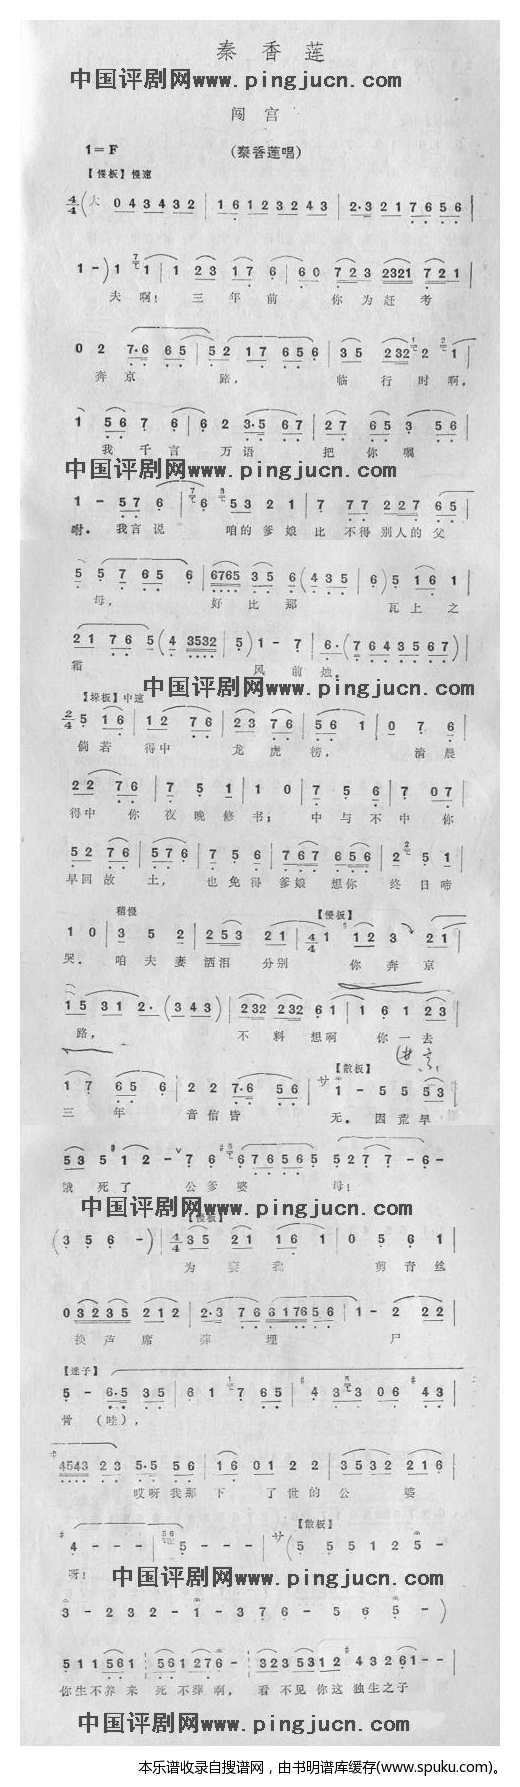 秦香莲
中国评剧网www.pingjucn.com
闯宫
1=F
(秦香莲唱)
【慢板】慢速
4/4 ( 大 0 4 3 4 3 2 | 1 6 1 2 3 2 4 3 | 2·3 2 1 7 6 5 6 |
1 - ) 1 1 | 1 2 3 1 7 6 | 6 0 7 2 3 2321 7 2 1
夫啊! 三年前 你为赶考
0 2 7·6 6 5 | 5 2 1 7 6 5 6 | 3 5 2 3 2 2 1
奔京路, 临行时啊,
1 5 6 7 6 | 6 2 3·5 6 7 | 2 7 6 5 3 5 6
我千言万语把你嘱
中国评剧网www.pingjucn.com
1 - 5 7 6 | 6 5 3 2 1 | 7 7 7 2 2 7 6 5
咐。我言说 咱的爹娘比不得别人的父
5 5 7 6 5 6 | 6765 3 5 6 ( 4 3 5 | 6 ) 5 1 6 1
母, 好比那 瓦上之
2 1 7 6 5 ( 4 3532 | 5 ) 1 - 7 | 6· ( 7 6 4 3 5 6 7 )
霜 风前烛,
中国评剧网www.pingjucn.com
【垛板】中速
2/4 5 1 6 | 1 2 7 6 | 2 3 7 6 | 5 6 1 | 0 7 6
倘若得中龙虎榜, 清晨
2 2 7 6 | 7 5 1 | 1 0 | 7 5 6 | 7 0 7
得中你夜晚修书; 中与不中你
5 2 7 6 | 5 7 6 | 7 5 6 | 7 6 7 6 5 6 | 2 5 1
早回故土, 也免得爹娘想你终日啼
稍慢
【慢板】
1 0 | 3 5 2 | 2 5 3 2 1 | 4/4 1 1 2 3 2 1
哭。咱夫妻洒泪分别 你奔京
1 5 3 1 2· ( 3 4 3 ) | 2 3 2 2 3 2 6 1 | 1 6 1 2 3
路, 不料想啊你一去
进京
【散板】
1 7 6 5 6 | 2 2 7·6 5 6 | サ 1 - 5 5 5 3
三年 音信皆无。因荒旱
5 3 5 1 2 - 7 6 6 7 6 5 6 5 5 2 7 7 - 6 -
饿死了公爹婆母!
中国评剧网www.pingjucn.com
【慢板】
( 3 5 6 - ) | 4/4 3 5 2 1 1 6 | 1 0 5 6 1 |
为妻我 剪青丝
0 3 2 3 5 2 1 2 | 2·3 7 6 6 1 7 6 5 6 | 1 - 2 2 2 |
换芦席葬埋尸
【迷子】
5 - 6·5 3 5 | 6 1 7 6 5 | 4 3 3 0 6 4 3
骨(哇),
4543 2 3 5·5 5 6 | 1 6 0 1 2 2 | 3 5 3 2 2 1 6 |
哎呀我那下了世的公婆
【散板】
4 - - - | 5 - - - | サ ( 5 5 5 1 2 5 -
呀!
中国评剧网www.pingjucn.com
3 - 2 3 2 - 1 - 3 7 6 - 5 6 5 - )
5 1 1 5 6 1 5 6 1 2 7 6 - 3 2 3 5 3 1 2 4 3 2 6 1 - -
你生不养来死不葬啊, 看不见你这独生之子
中国评剧网www.pingjucn.com
本乐谱收录自搜谱网，由书明谱库缓存(www.spuku.com)。